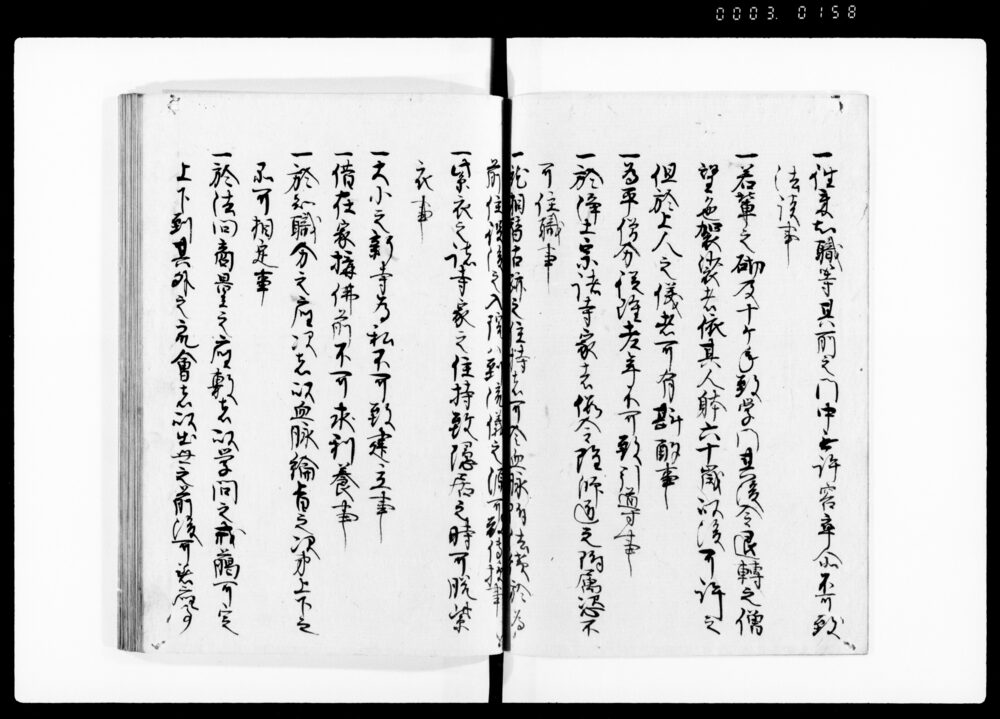 0003. 0158
一 往来知識等其所之門中無許容卒尓不可致
法談事
一 若輩之砌及十ヶ年致学問其後令退轉之僧
望色袈裟者依其人躰六十歳以後可許之
但於上人之儀者可有斟酌事
一 為平僧分従雖老年不可致引導事
一 於浄土宗諸寺家者縦令雖師道之附属恣不
可住職事
一 就相続古跡之住持者可令血脉附法儀於為
前住没後之入院者到 儀之源可
一 紫衣之諸寺家之住持致隠居之時可脱紫
衣事
一 大小之新寺為私不可致建立事
一 借在家構佛前不可求利養事
一 於知識分之座次者以血脉綸旨之次第上下之
不可相定事
一 於法問商量之座敷者以学問之戒臈可定
上下到其外之衆會者以出世之前後可